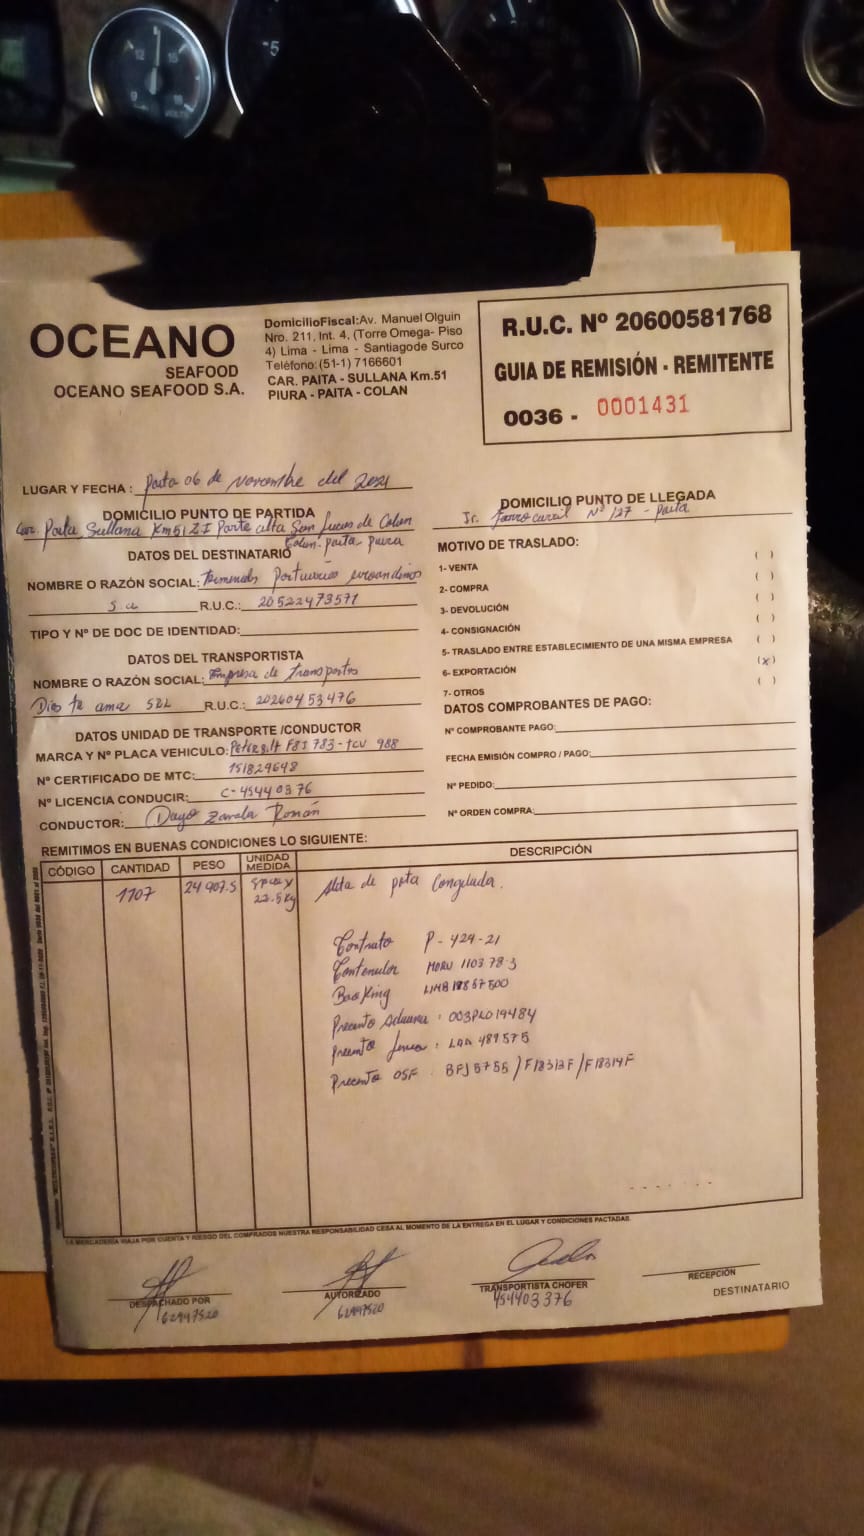 OCEANO
SEAFOOD
OCEANO SEAFOOD S.A.
DomicilioFiscal:Av. Manuel Olguin
Nro. 211, Int. 4, (Torre Omega- Piso
4) Lima - Lima - Santiagode Surco
Teléfono: (51-1) 7166601
CAR. PAITA - SULLANA Km.51
PIURA - PAITA - COLAN
R.U.C. Nº 20600581768
GUIA DE REMISIÓN - REMITENTE
0036 - 0001431
LUGAR Y FECHA : Paita 06 de Noviembre del 2021
DOMICILIO PUNTO DE PARTIDA
Car. Paita Sullana Km 51 Z I Parte alta San Lucas de Colan
Colan-paita-piura
DOMICILIO PUNTO DE LLEGADA
Jr. Ferrocarril Nº 127 - Paita
DATOS DEL DESTINATARIO
NOMBRE O RAZÓN SOCIAL: Terminales Portuarios euroandinos
s.a R.U.C.: 20522473571
TIPO Y Nº DE DOC DE IDENTIDAD:
DATOS DEL TRANSPORTISTA
NOMBRE O RAZÓN SOCIAL: Empresa de transportes
Dios te ama SRL R.U.C.: 20260453476
DATOS UNIDAD DE TRANSPORTE /CONDUCTOR
MARCA Y Nº PLACA VEHICULO: Peterbilt F8I 783 - tcv 988
Nº CERTIFICADO DE MTC: 151829648
Nº LICENCIA CONDUCIR: C-45440376
CONDUCTOR: Zavala Román
MOTIVO DE TRASLADO:
1- VENTA ( )
2- COMPRA ( )
3- DEVOLUCIÓN ( )
4- CONSIGNACIÓN ( )
5- TRASLADO ENTRE ESTABLECIMIENTO DE UNA MISMA EMPRESA ( )
6- EXPORTACIÓN (x)
7- OTROS ( )
DATOS COMPROBANTES DE PAGO:
Nº COMPROBANTE PAGO:
FECHA EMISIÓN COMPRO / PAGO:
Nº PEDIDO:
Nº ORDEN COMPRA:
REMITIMOS EN BUENAS CONDICIONES LO SIGUIENTE:
CÓDIGO CANTIDAD PESO UNIDAD MEDIDA DESCRIPCIÓN
1107 24 907.5 22.5 Kg Aleta de pota Congelada.
Contrato P- 424-21
Contenedor MORU 1103 78-3
Booking LIMB18857500
Precinto Aduana : 003PL019484
Precinto Linea : LAA 489575
Precinto OSF : BFJ5755 / F18313F / F18314F
LA MERCADERÍA VIAJA POR CUENTA Y RIESGO DEL COMPRADOS NUESTRA RESPONSABILIDAD CESA AL MOMENTO DE LA ENTREGA EN EL LUGAR Y CONDICIONES PACTADAS.
DESPACHADO POR
62447520
AUTORIZADO
62447520
TRANSPORTISTA CHOFER
454403376
RECEPCIÓN
DESTINATARIO